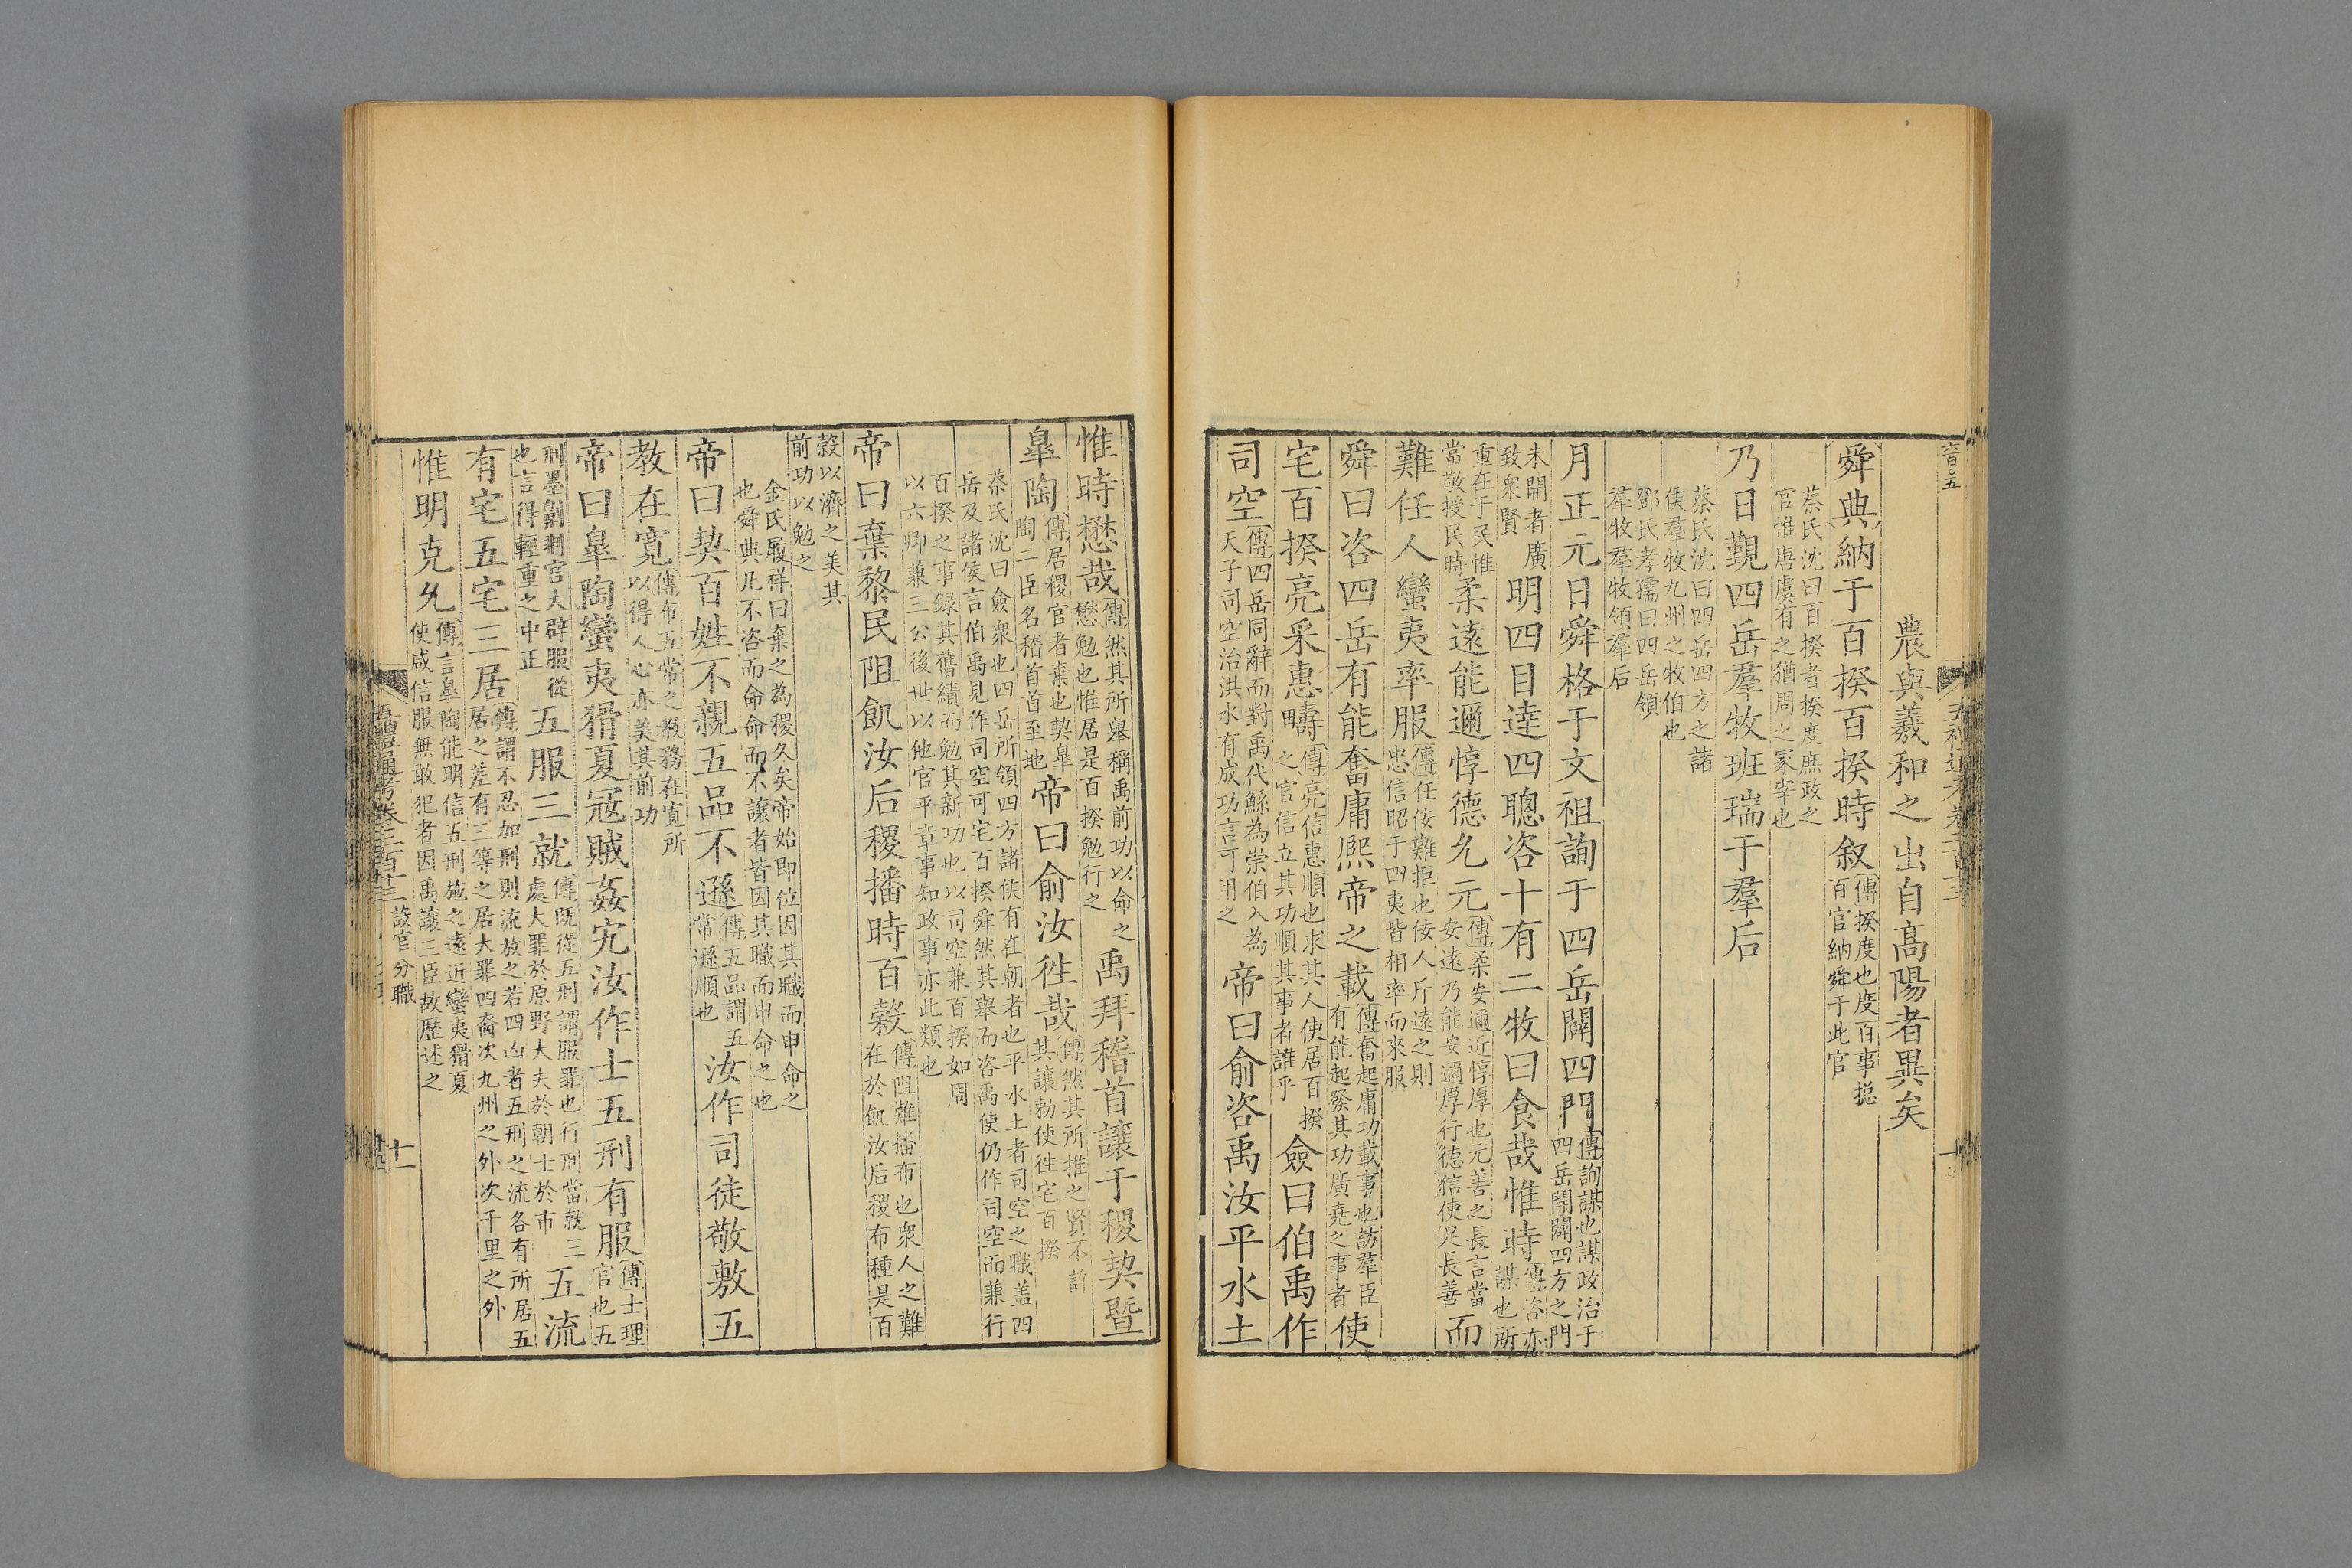 農與羲和之出自髙陽者異矣
舜典納于百揆百揆時叙傳揆度也度百事揔百官納舜于此官
蔡氏沈曰百揆者揆度庶政之官惟唐虞有之猶周之冡宰也
乃日覲四岳羣牧班瑞于羣后
蔡氏沈曰四岳四方之諸侯羣牧九州之牧伯也
鄧氏孝孺曰四岳領羣牧羣牧領羣后
月正元日舜格于文祖詢于四岳闢四門傳詢謀也謀政治于四岳開闢四方之門
未開者廣致衆賢明四目逹四聰咨十有二牧曰食哉惟時傳咨亦謀也所
重在于民惟當敬授民時柔逺能邇惇德允元傳柔安邇近惇厚也元善之長言當安逺乃能安邇厚行德信使足長善而
難任人蠻夷率服傳任佞難拒也佞人斥逺之則忠信昭于四夷皆相率而來服
舜曰咨四岳有能奮庸熙帝之載傳奮起庸功載事也訪羣臣有能起發其功廣堯之事者使
宅百揆亮采惠疇傳亮信惠順也求其人使居百揆之官信立其功順其事者誰乎僉曰伯禹作
司空傳四岳同辭而對禹代鯀為崇伯入為天子司空治洪水有成功言可用之帝曰俞咨禹汝平水土
惟時懋哉傳然其所舉稱禹前功以命之懋勉也惟居是百揆勉行之禹拜稽首讓于稷契暨
皐陶傳居稷官者棄也契皐陶二臣名稽首首至地帝曰俞汝徃哉傳然其所推之賢不許其讓勅使徃宅百揆
蔡氏沈曰僉衆也四岳所領四方諸侯有在朝者也平水土者司空之職盖四岳及諸侯言伯禹見作司空可宅百揆舜然其舉而咨禹使仍作司空而兼行
百揆之事録其舊績而勉其新功也以司空兼百揆如周以六卿兼三公後世以他官平章事知政事亦此類也
帝曰棄黎民阻飢汝后稷播時百榖傳阻難播布也衆人之難在於飢汝后稷布種是百
榖以濟之美其前功以勉之
金氏履祥曰棄之為稷久矣帝始即位因其職而申命之也舜典凡不咨而命命而不讓者皆因其職而申命之也
帝曰契百姓不親五品不遜傳五品謂五常遜順也汝作司徒敬敷五
教在寛傳布五常之教務在寛所以得人心亦美其前功
帝曰皐陶蠻夷猾夏寇賊姦宄汝作士五刑有服傳士理官也五
刑墨劓剕宫大辟服從也言得輕重之中正五服三就傳既從五刑謂服罪也行刑當就三處大罪於原野大夫於朝士於市五流
有宅五宅三居傳謂不忍加刑則流放之若四凶者五刑之流各有所居五居之差有三等之居大罪四裔次九州之外次千里之外
惟明克允傳言皐陶能明信五刑施之逺近蠻夷猾夏使咸信服無敢犯者因禹讓三臣故歴述之
五禮通考卷二百十三 設官分職
十一